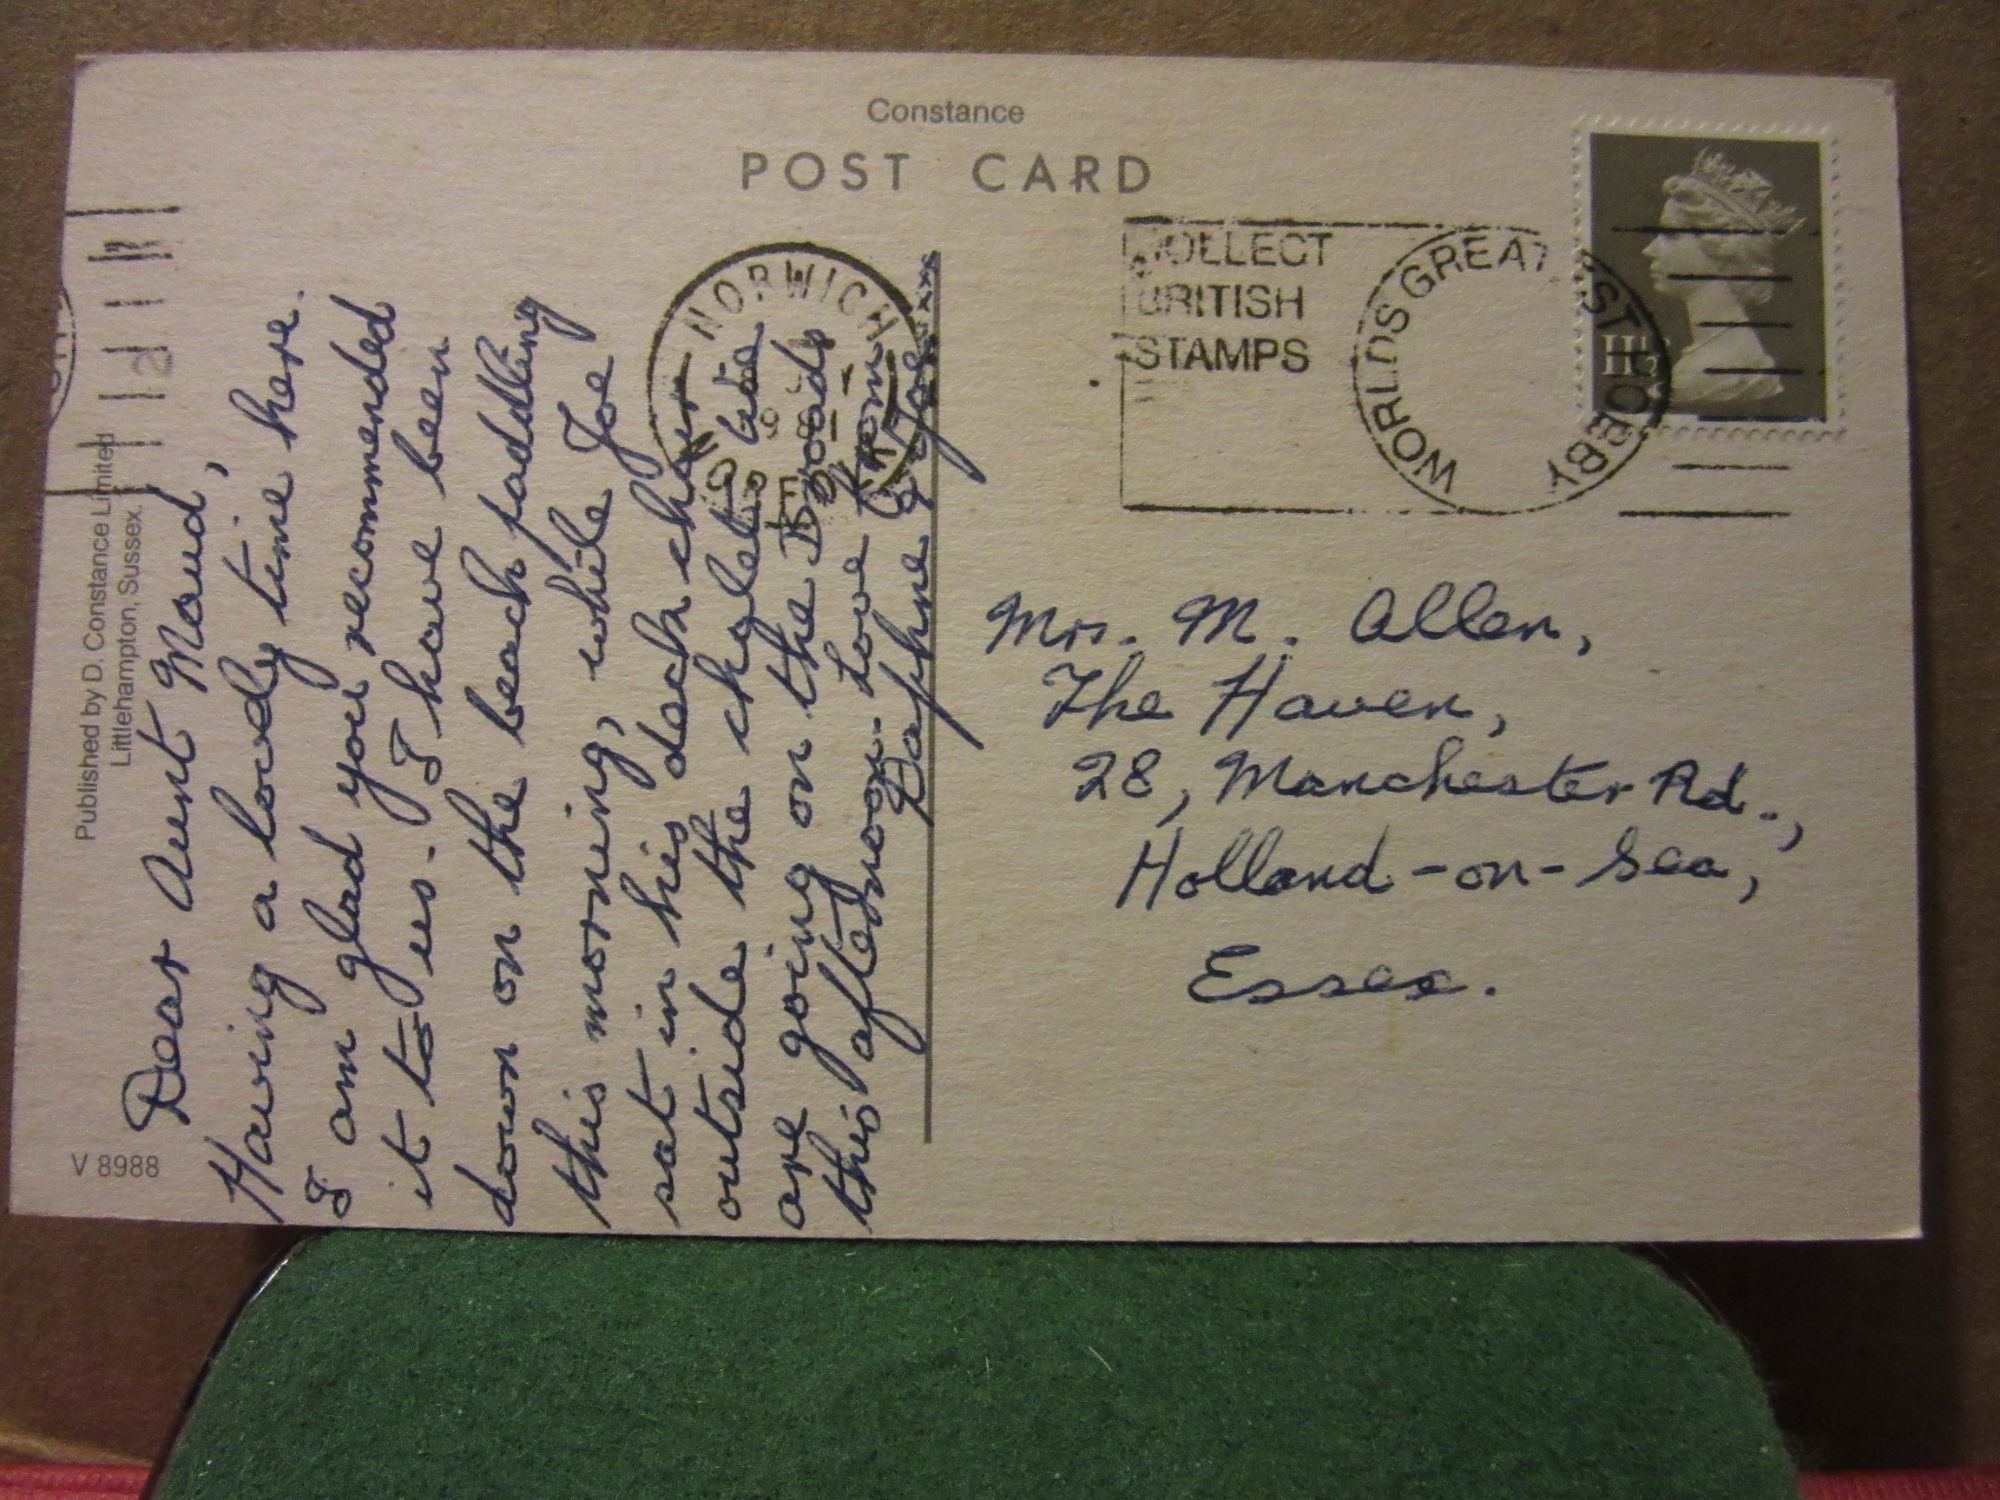 Constance
POST CARD
Published by D. Constance Limited
Littlehampton, Sussex.
V 8988
Dear Aunt Maud,
Having a lovely time here.
I am glad you recommended
it to us. I have been
down on the beach paddling
this morning, while Joe
sat in his deck chair
outside the chalet. We
are going on the Broads
this afternoon. Love from
Daphne & Joe
NORWICH
COLLECT
BRITISH
STAMPS
WORLDS GREATEST HOBBY
Mrs. M. Allen,
The Haven,
28, Manchester Rd.,
Holland-on-Sea,
Essex.